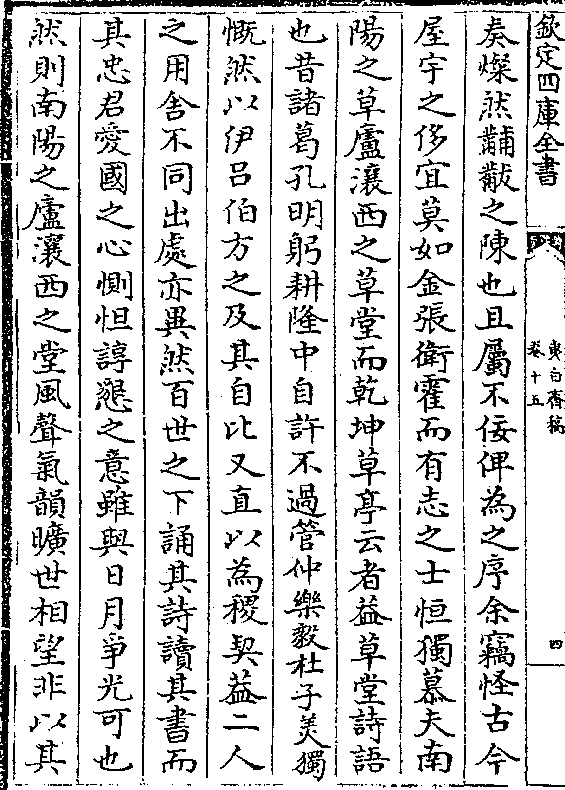 欽定四庫全書
夷白齋稿
卷十五
四
奏燦然黼黻之陳也且屬不佞俾為之序余竊怪古今
屋宇之侈宜莫如金張衛霍而有志之士恒獨慕夫南
陽之草廬瀼西之草堂而乾坤草亭云者葢草堂詩語
也昔諸葛孔明躬耕隆中自許不過管仲樂毅杜子美獨
慨然以伊呂伯方之及其自比又直以為稷契葢二人
之用舍不同出處亦異然百世之下誦其詩讀其書而
其忠君愛國之心惻怛諄懇之意雖與日月爭光可也
然則南陽之廬瀼西之堂風聲氣韻曠世相望非以其